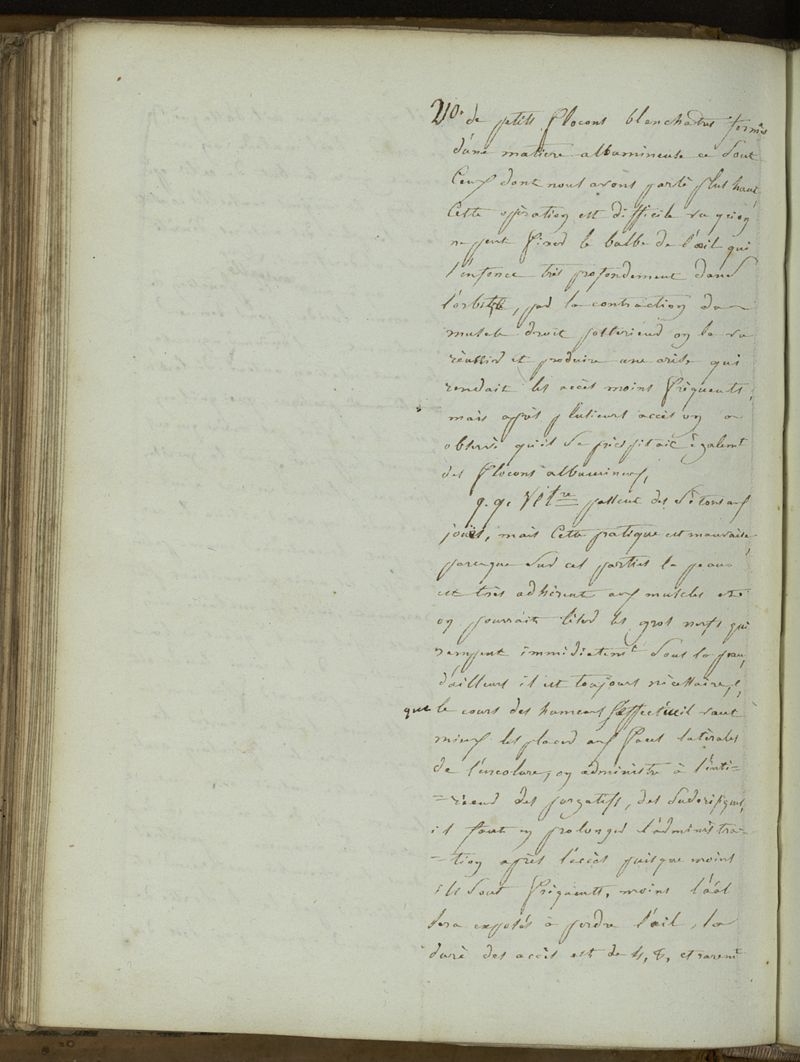 210. de petits flocons blanchatres formés
d'une matiere albumineuse ce sont
ceux dont nous avons parlé plus haut,
Cette opération est difficile vu qu'on
ne peut fixer le bulbe de l'œil qui
s'enfonce très profondement dans
l'orbite, par la contraction du
muscle droit posterieur on l'a vu
réussir et produire une crise qui
rendait les accès moins fréquents,
mais après plusieurs accès on a
observé qu'il se précipitait égalemt
des flocons albumineux,
q. q. Vétre passent des sétons aux
joues, mais Cette pratique est mauvaise
parceque sur ces parties la peau
est très adhérent aux muscles et
on pourrait léser les gros nerfs qui
rampent immédiatemt sous la peau,
d'ailleurs il est toujours nécessaire,
que le cours des humeurs s'effectue il vaut
mieux les placer aux faces latérales
de l'encolure, on administre à l'inté-
=rieur des purgatifs, des sudorifiques,
il faut en prolonger l'administra-
=tion après l'accès puisque moins
ils sont fréquents, moins l'aal
sera exposés à perdre l'œil, la
duré des accès est de 4, 8, et raremt